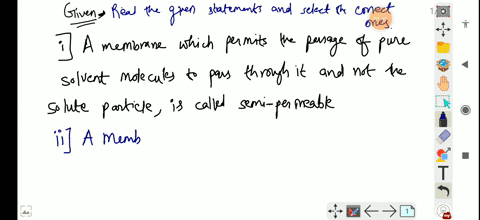 Given → Read the given statements and select the correct
ones.
i] A membrane which permits the passage of pure
solvent molecules to pass through it and not the
solute particle, is called semi-permeable
ii] A memb